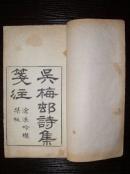 吳梅邨詩集
箋注
滄浪吟榭
藏板